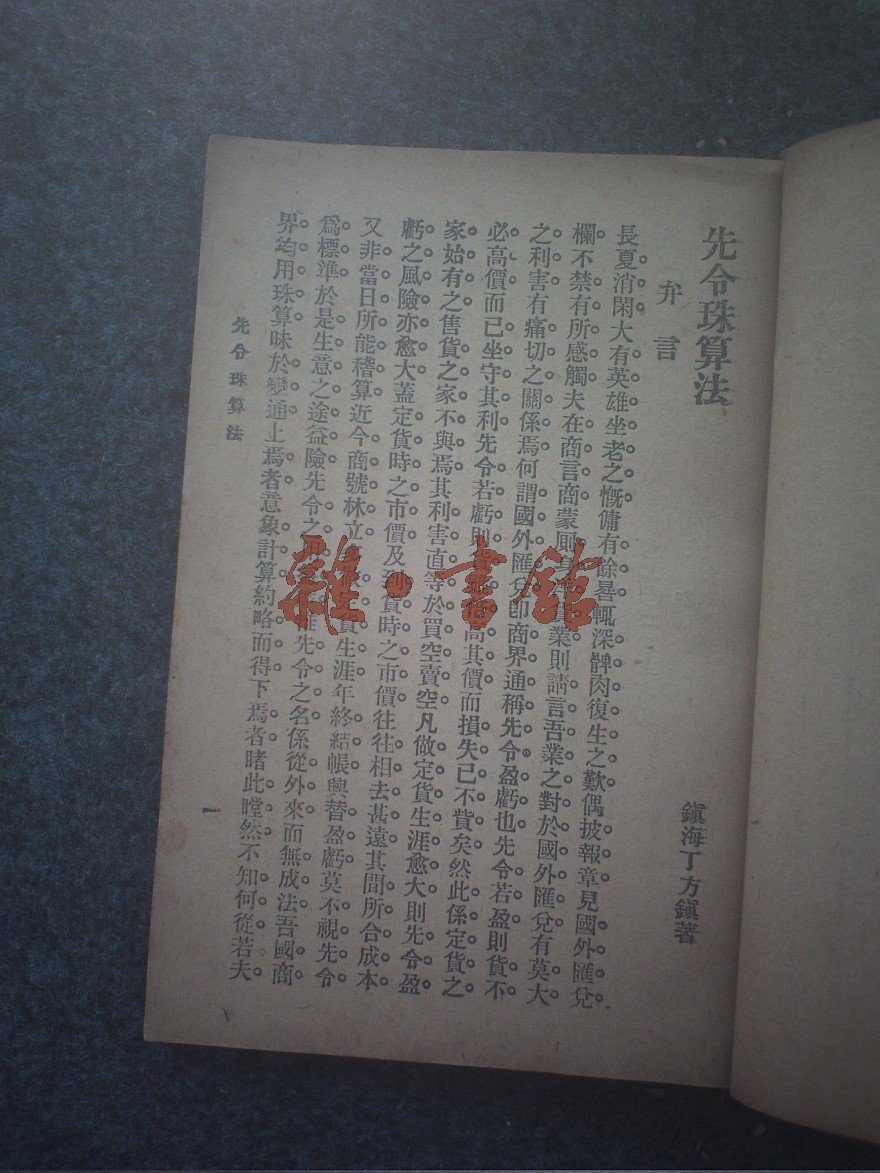 先令珠算法
弁言
鎭海丁方鎭著
長夏消閑大有英雄坐老之慨傭有餘晷輒深髀肉復生之歎偶披報章見國外匯兌
欄不禁有所感觸夫在商言商蒙厠身業則請言吾業之對於國外匯兌有莫大
之利害有痛切之關係焉何謂國外匯兌卽商界通稱先令盈虧也先令若盈則貨不
必高價而已坐守其利先令若虧則高其價而損失已不貲矣然此係定貨之
家始有之售貨之家不與焉其利害直等於買空賣空凡做定貨生涯愈大則先令盈
虧之風險亦愈大蓋定貨時之市價及到貨時之市價往往相去甚遠其間所合成本
又非當日所能稽算近今商號林立生涯年終結帳興替盈虧莫不視先令
爲標準於是生意之途益險先令之先令之名係從外來而無成法吾國商
界均用珠算昧於變通上焉者意象計算約略而得下焉者睹此瞠然不知何從若夫
先令珠算法
一
雜·書館